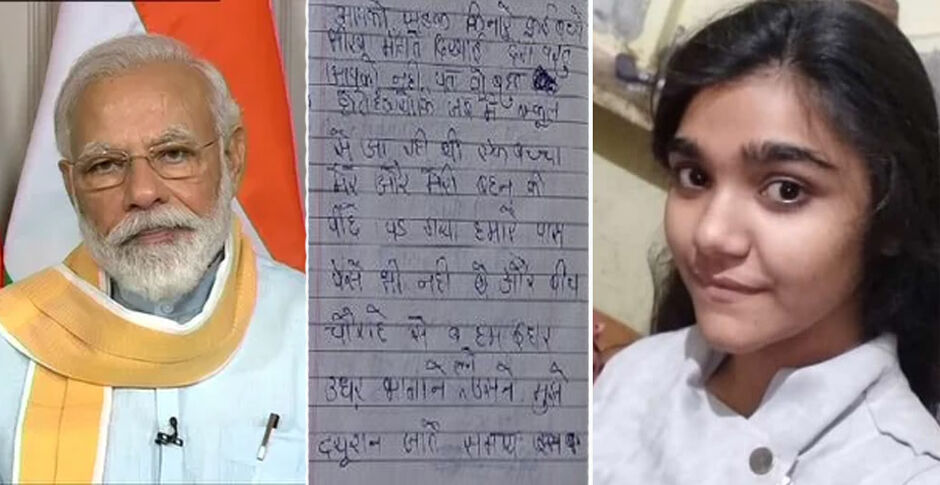 आपको सड़क किनारे कई बच्चे
भीख माँगते दिखाई देगे परंतु
आपको नही पत
में स्कूल
से आ रही थी एक बच्चा
मेरे और मेरी बहन के
पीछे पड गया हमारे पास
पैसे भी नही थे और बीच
चौराहे से व हम इधर
उधर भागने लगे उसने मुझे
ट्यूशन जाते समय